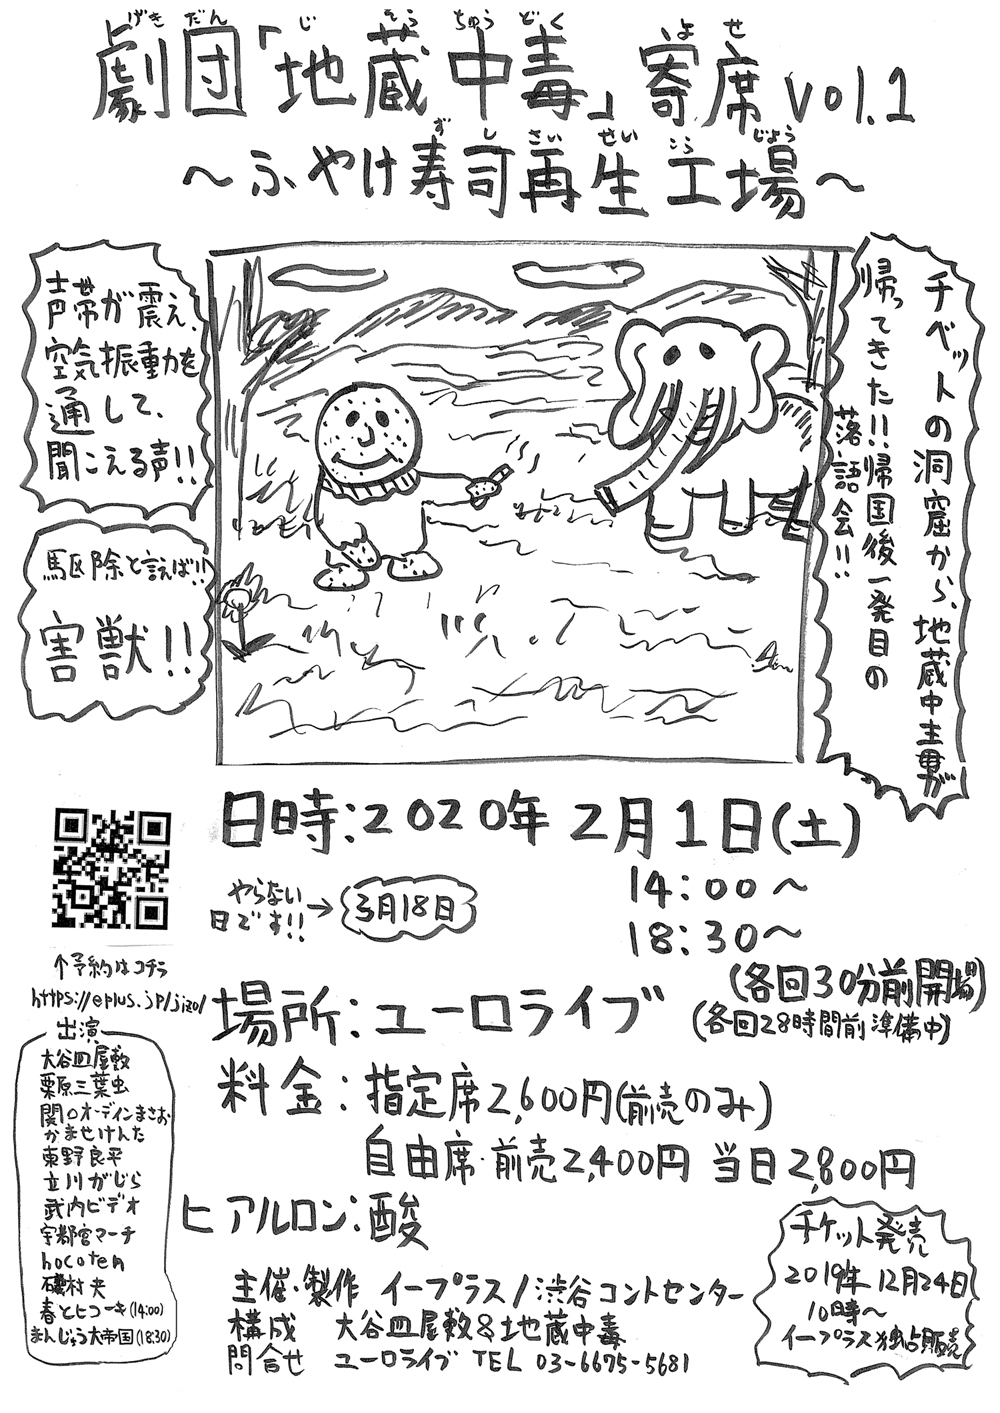 劇団「地蔵中毒」寄席 vol.1
げきだん じぞうちゅうどく よせ
～ふやけ寿司再生工場～
ずし さいせい こうじょう
チベットの洞窟から、地蔵中主宰が
帰ってきた!!帰国後一発目の
落語会!!
声帯が震え、
空気振動を
通して、
聞こえる声!!
駆除と言えば!!
害獣!!
日時:2020年2月1日(土)
14:00～
18:30～
(各回30分前開場)
(各回28時間前準備中)
やらない
日です!!→
3月18日
↑予約はコチラ
https://eplus.jp/jizo/
場所:ユーロライブ
料金:指定席2,600円(前売のみ)
自由席・前売2,400円 当日2,800円
ヒアルロン:酸
出演
大谷皿屋敷
栗原三葉虫
関口オーディンまさお
かませけんた
東野良平
立川がじら
武内ビデオ
宇都宮マーチ
hocoten
礒村夬
春とヒコーキ(14:00)
まんじゅう大帝国(18:30)
主催・製作 イープラス/渋谷コントセンター
構成 大谷皿屋敷&地蔵中毒
問合せ ユーロライブ TEL 03-6675-5681
チケット発売
2019年12月24日
10時～
イープラス独占販売